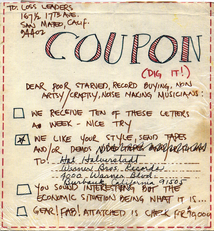 TO: LOSS LEADERS
167½ 17TH AVE.
SAN MATEO, CALIF.
94402
COUPON
(DIG IT!)
DEAR POOR, STARVED, RECORD BUYING, NON
ARTSY/CRAFTSY, NOISE MAKING MUSICIANS:
WE RECEIVE TEN OF THESE LETTERS
A WEEK - NICE TRY
WE LIKE YOUR STYLE, SEND TAPES
AND/OR DEMOS
TO: Hal Halverstadt
Warner Bros. Records
Warner Blvd.
Burbank California 91505
YOU SOUND INTERESTING BUT THE
ECONOMIC SITUATION BEING WHAT IT IS...
GEAR! FAB! ATTATCHED IS CHECK FOR